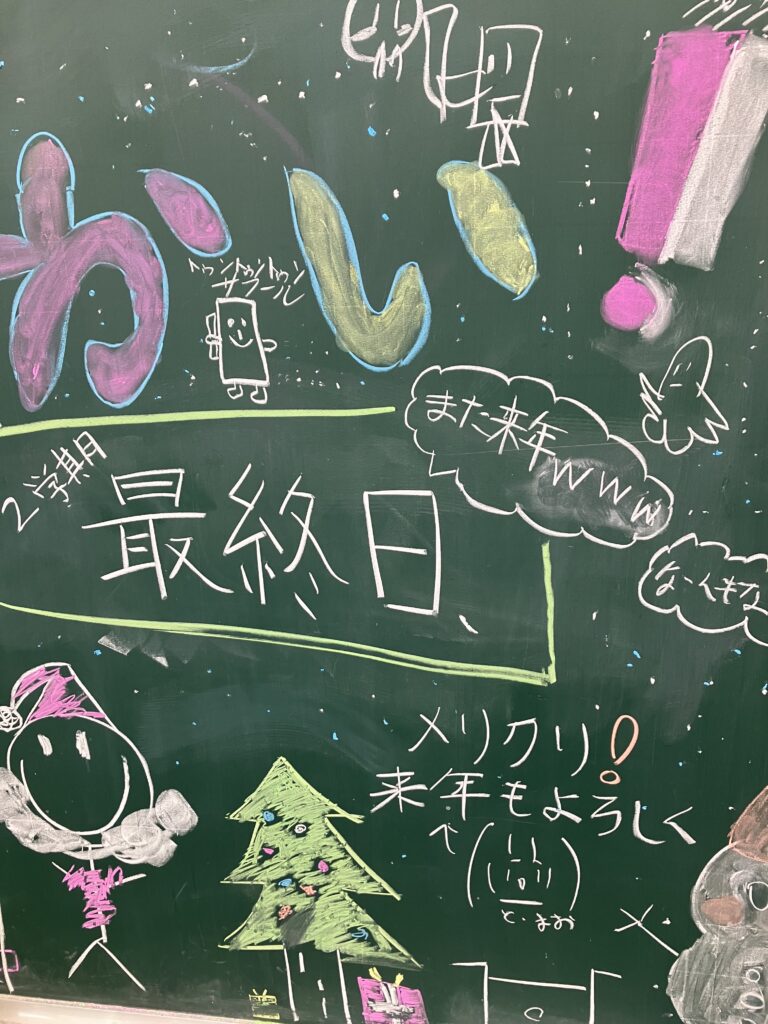 かい!
トゥントゥントゥン
サフール
また来年www
2学期
最終日、
メリクリ!
来年もよろしく